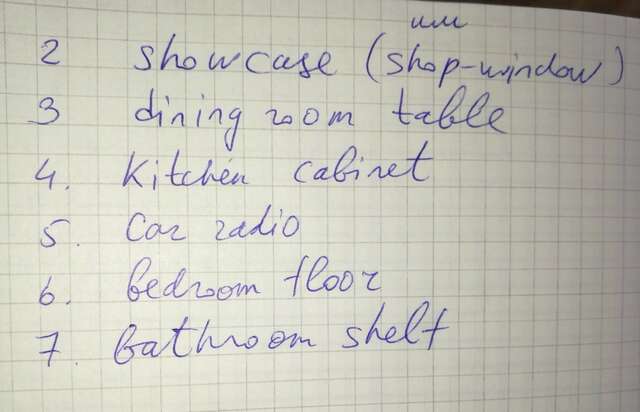 или
2 showcase (shop-window)
3 dining room table
4. kitchen cabinet
5. car radio
6. bedroom floor
7. bathroom shelf